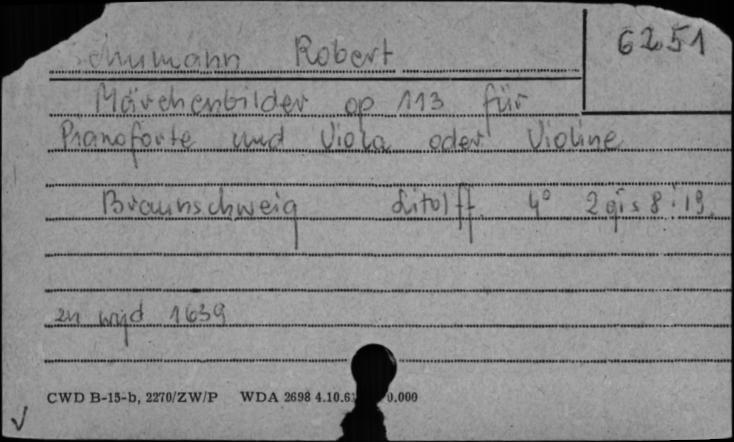 6251
chumann Robert
Märchenbilder op 113 für
Pianoforte und Viola oder Violine
Braunschweig Litolff 4° 2 8 i 19.
zn wyd 1639
CWD B-15-b, 2270/ZW/P WDA 2698 4.10.6 0.000